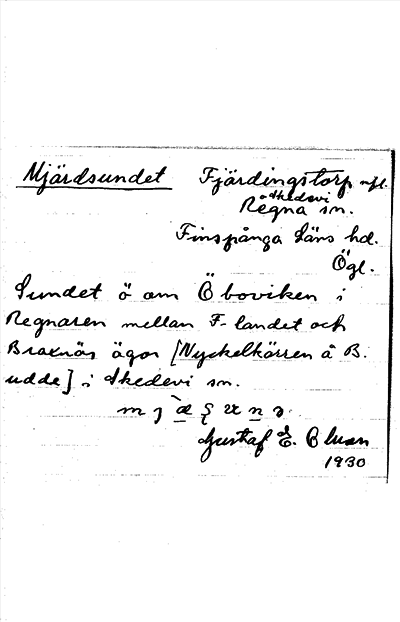 Mjärdsundet Fjärdingstorp
Skedevi
Regna sn.
Finspånga läns hd.
Ögl.
Sundet ö om Öboviken i
Regnaren mellan F. landet och
Braxnäs ägor [Nyckelkärren å B.
udde] i Skedevi sn.
Gustaf E. Bluan
1930